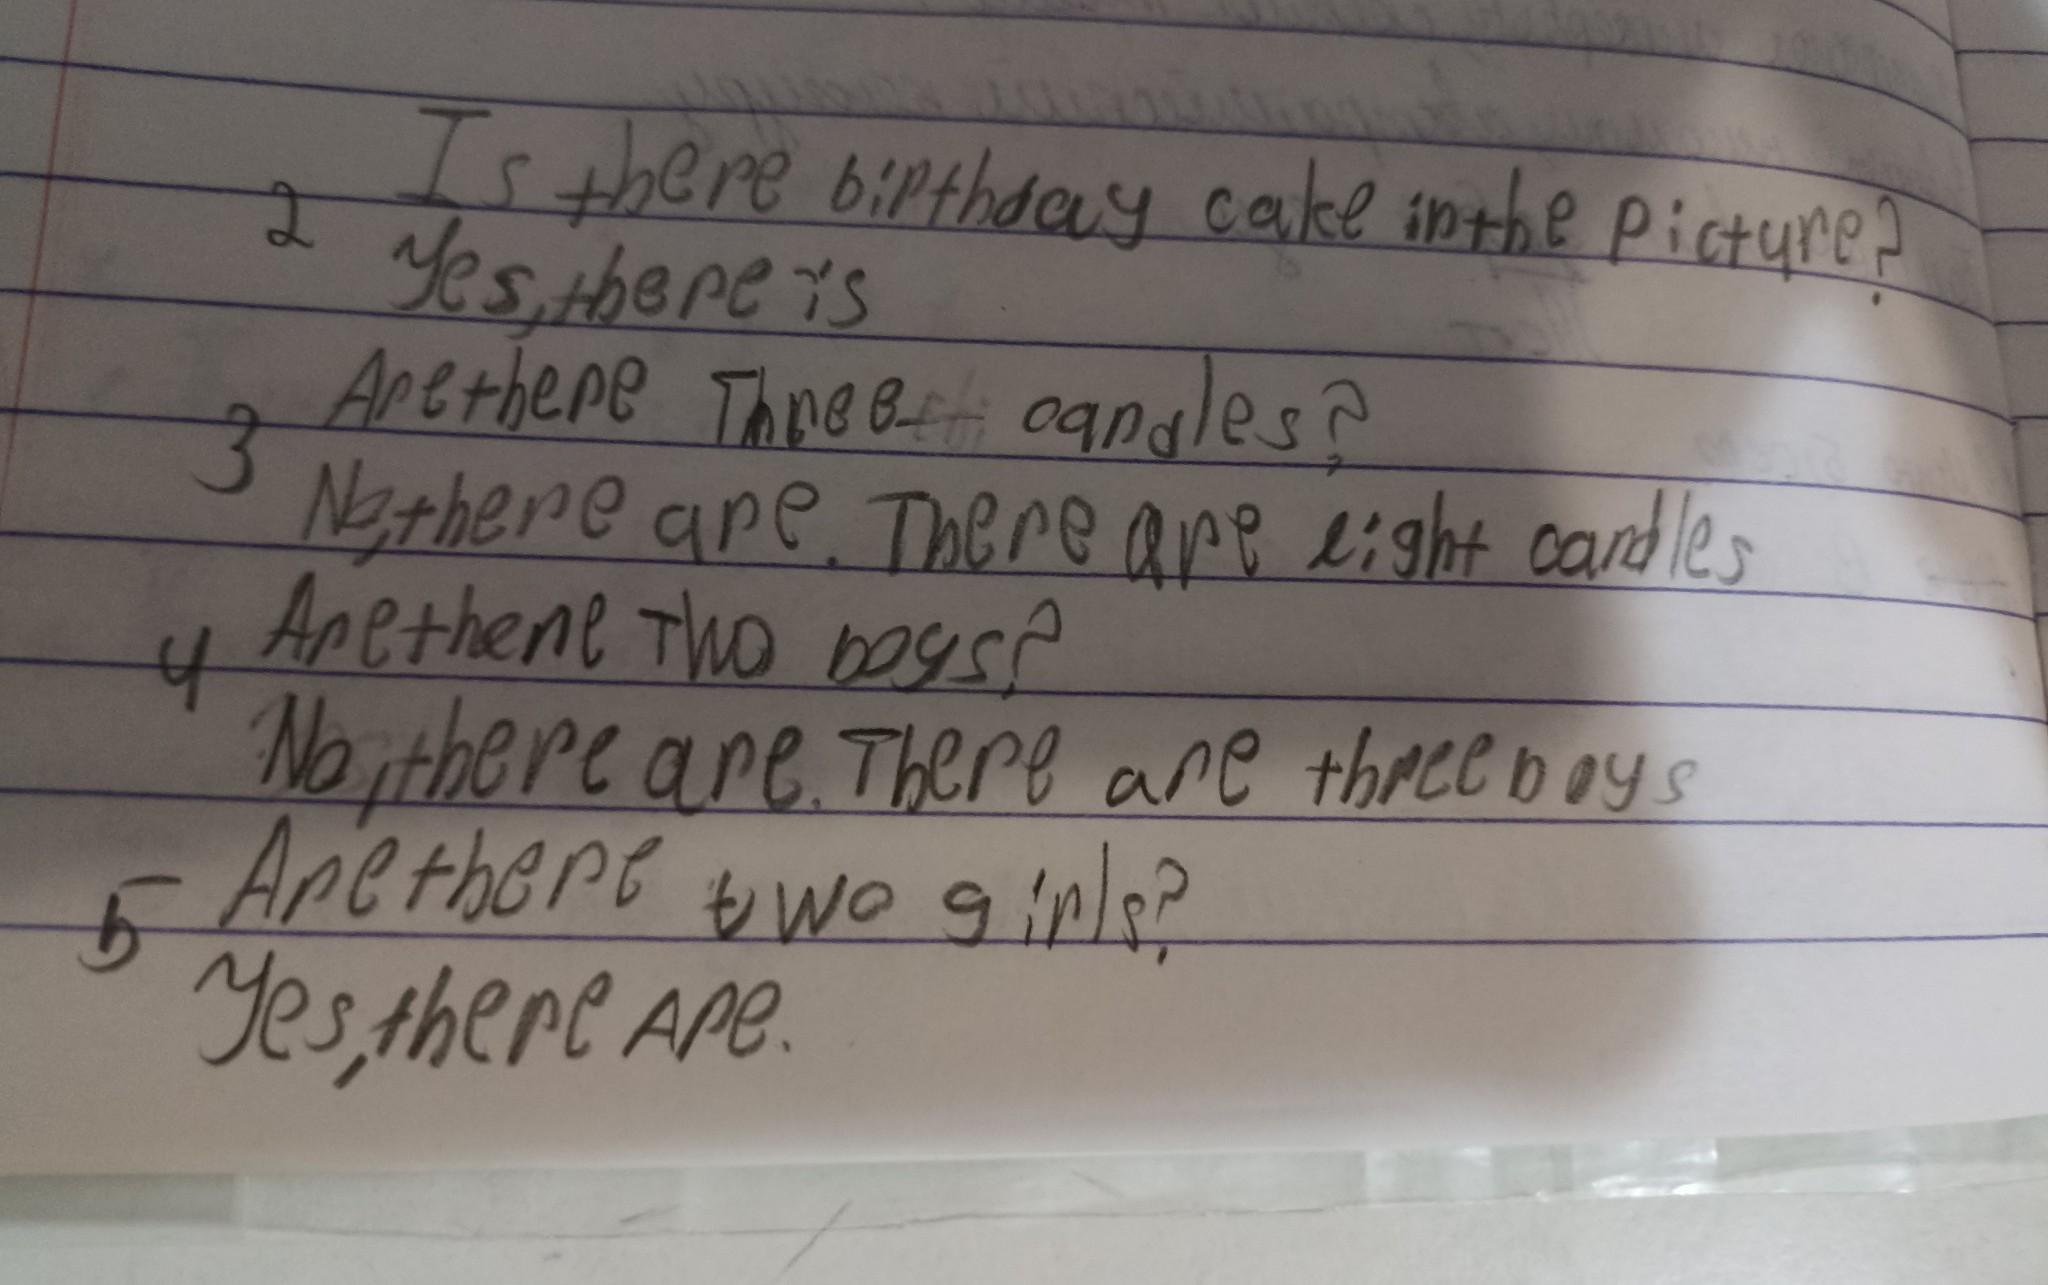 Is there birthday cake in the picture?
2 Yes, there is
Are there Three candles?
3 No, there are. There are eight candles
4 Are there Two boys?
No, there are. There are three boys
5 Are there two girls?
Yes, there Are.